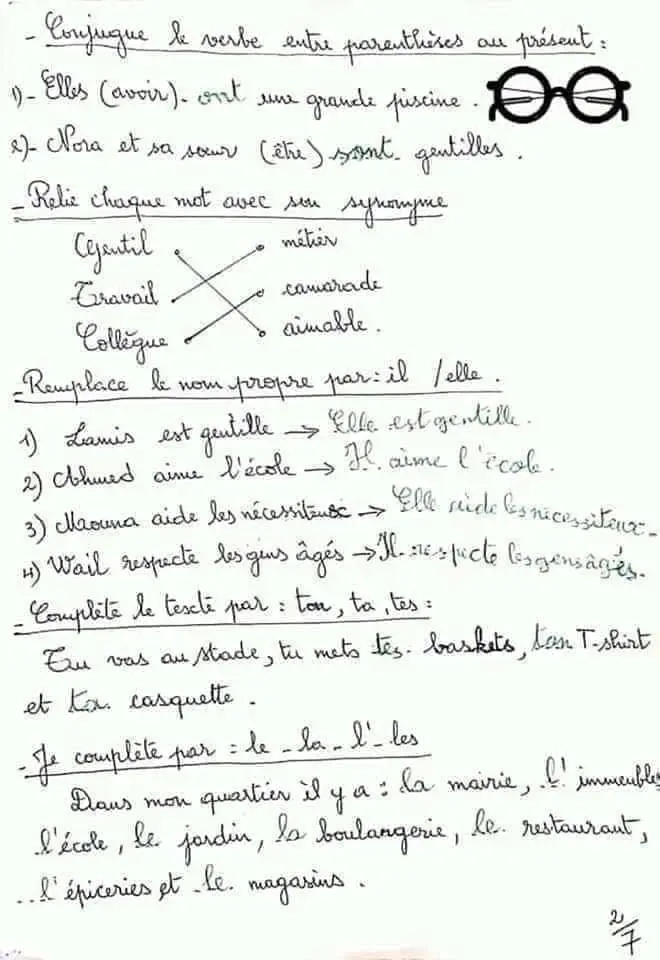 - Conjugue le verbe entre parenthèses au présent :
1)- Elles (avoir). ont une grande piscine.
2)- Nora et sa sœur (être) sont gentilles.
- Relie chaque mot avec son synonyme
Gentil métier
Travail camarade
Collègue aimable.
- Remplace le nom propre par : il / elle.
1) Lamis est gentille → Elle est gentille.
2) Ahmed aime l'école → Il aime l'école.
3) Maouna aide les nécessiteux → Elle aide les necessiteux.
4) Wail respecte les gens âgés → Il respecte les gens âgés.
- Complète le texte par : ton, ta, tes :
Tu vas au stade, tu mets tes. baskets, ton T-shirt
et ta. casquette.
- Je complète par : le - la - l' - les
Dans mon quartier il y a : la mairie, l' immeubles
l'école, le jardin, la boulangerie, le. restaurant,
..l'épiceries et .le. magasins.
2/7